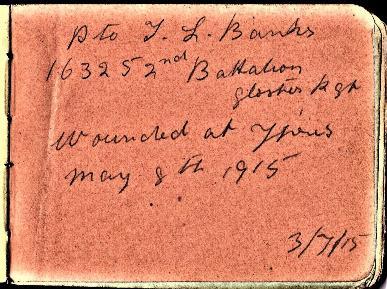 Pte T. L. Banks
16325 2nd Battalion
gloster Rgt
Wounded at Ypres
May 8th 1915
3/7/15